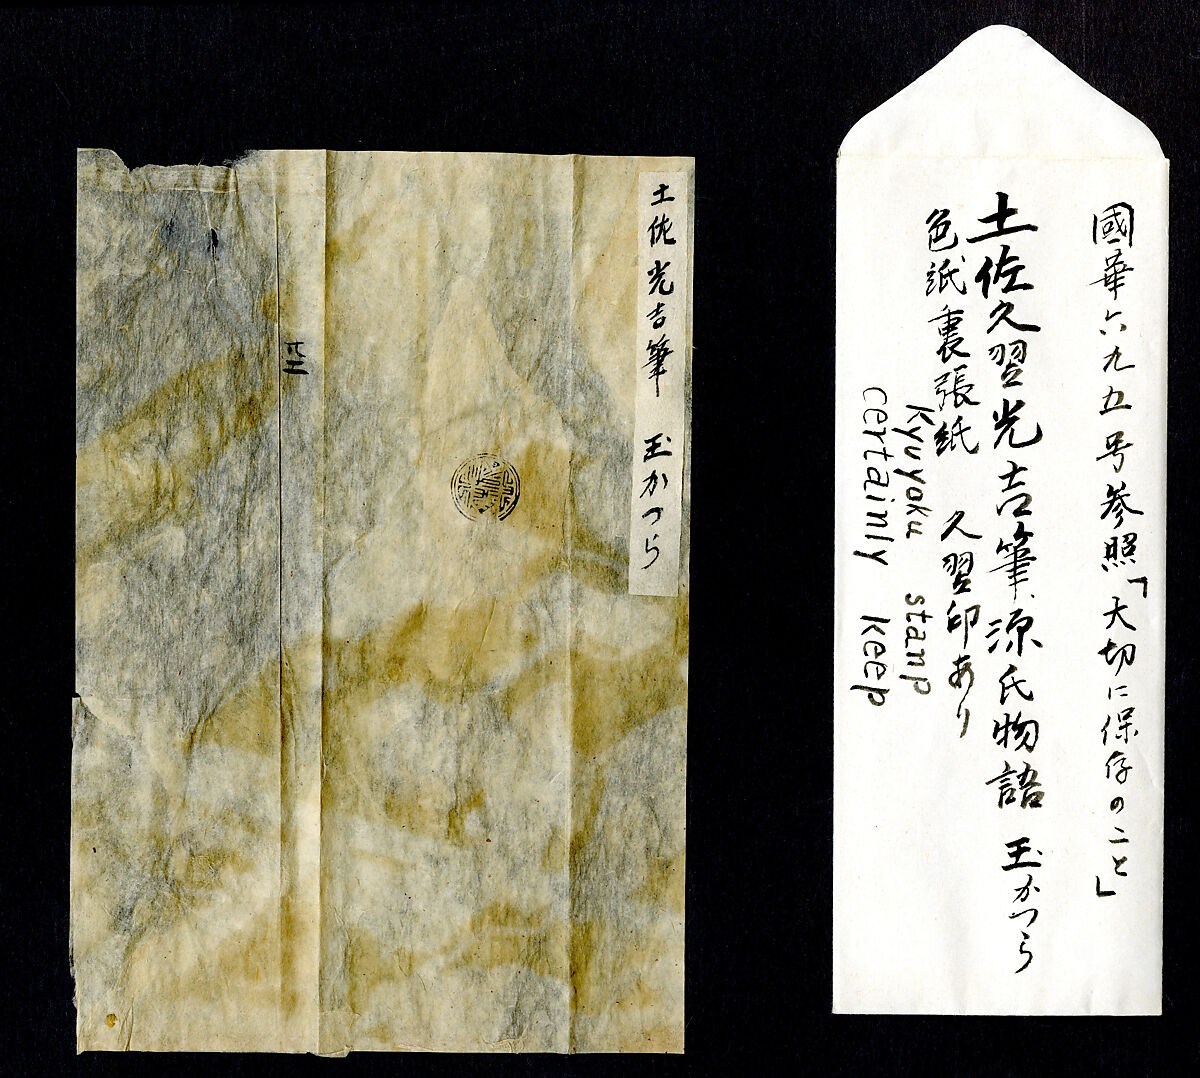 土佐光吉筆 玉かつら
國華六九五号参照「大切に保存のこと」
土佐久翌光吉筆、源氏物語 玉かつら
色紙裏張紙 久翌印あり
Kyuyoku stamp
certainly keep